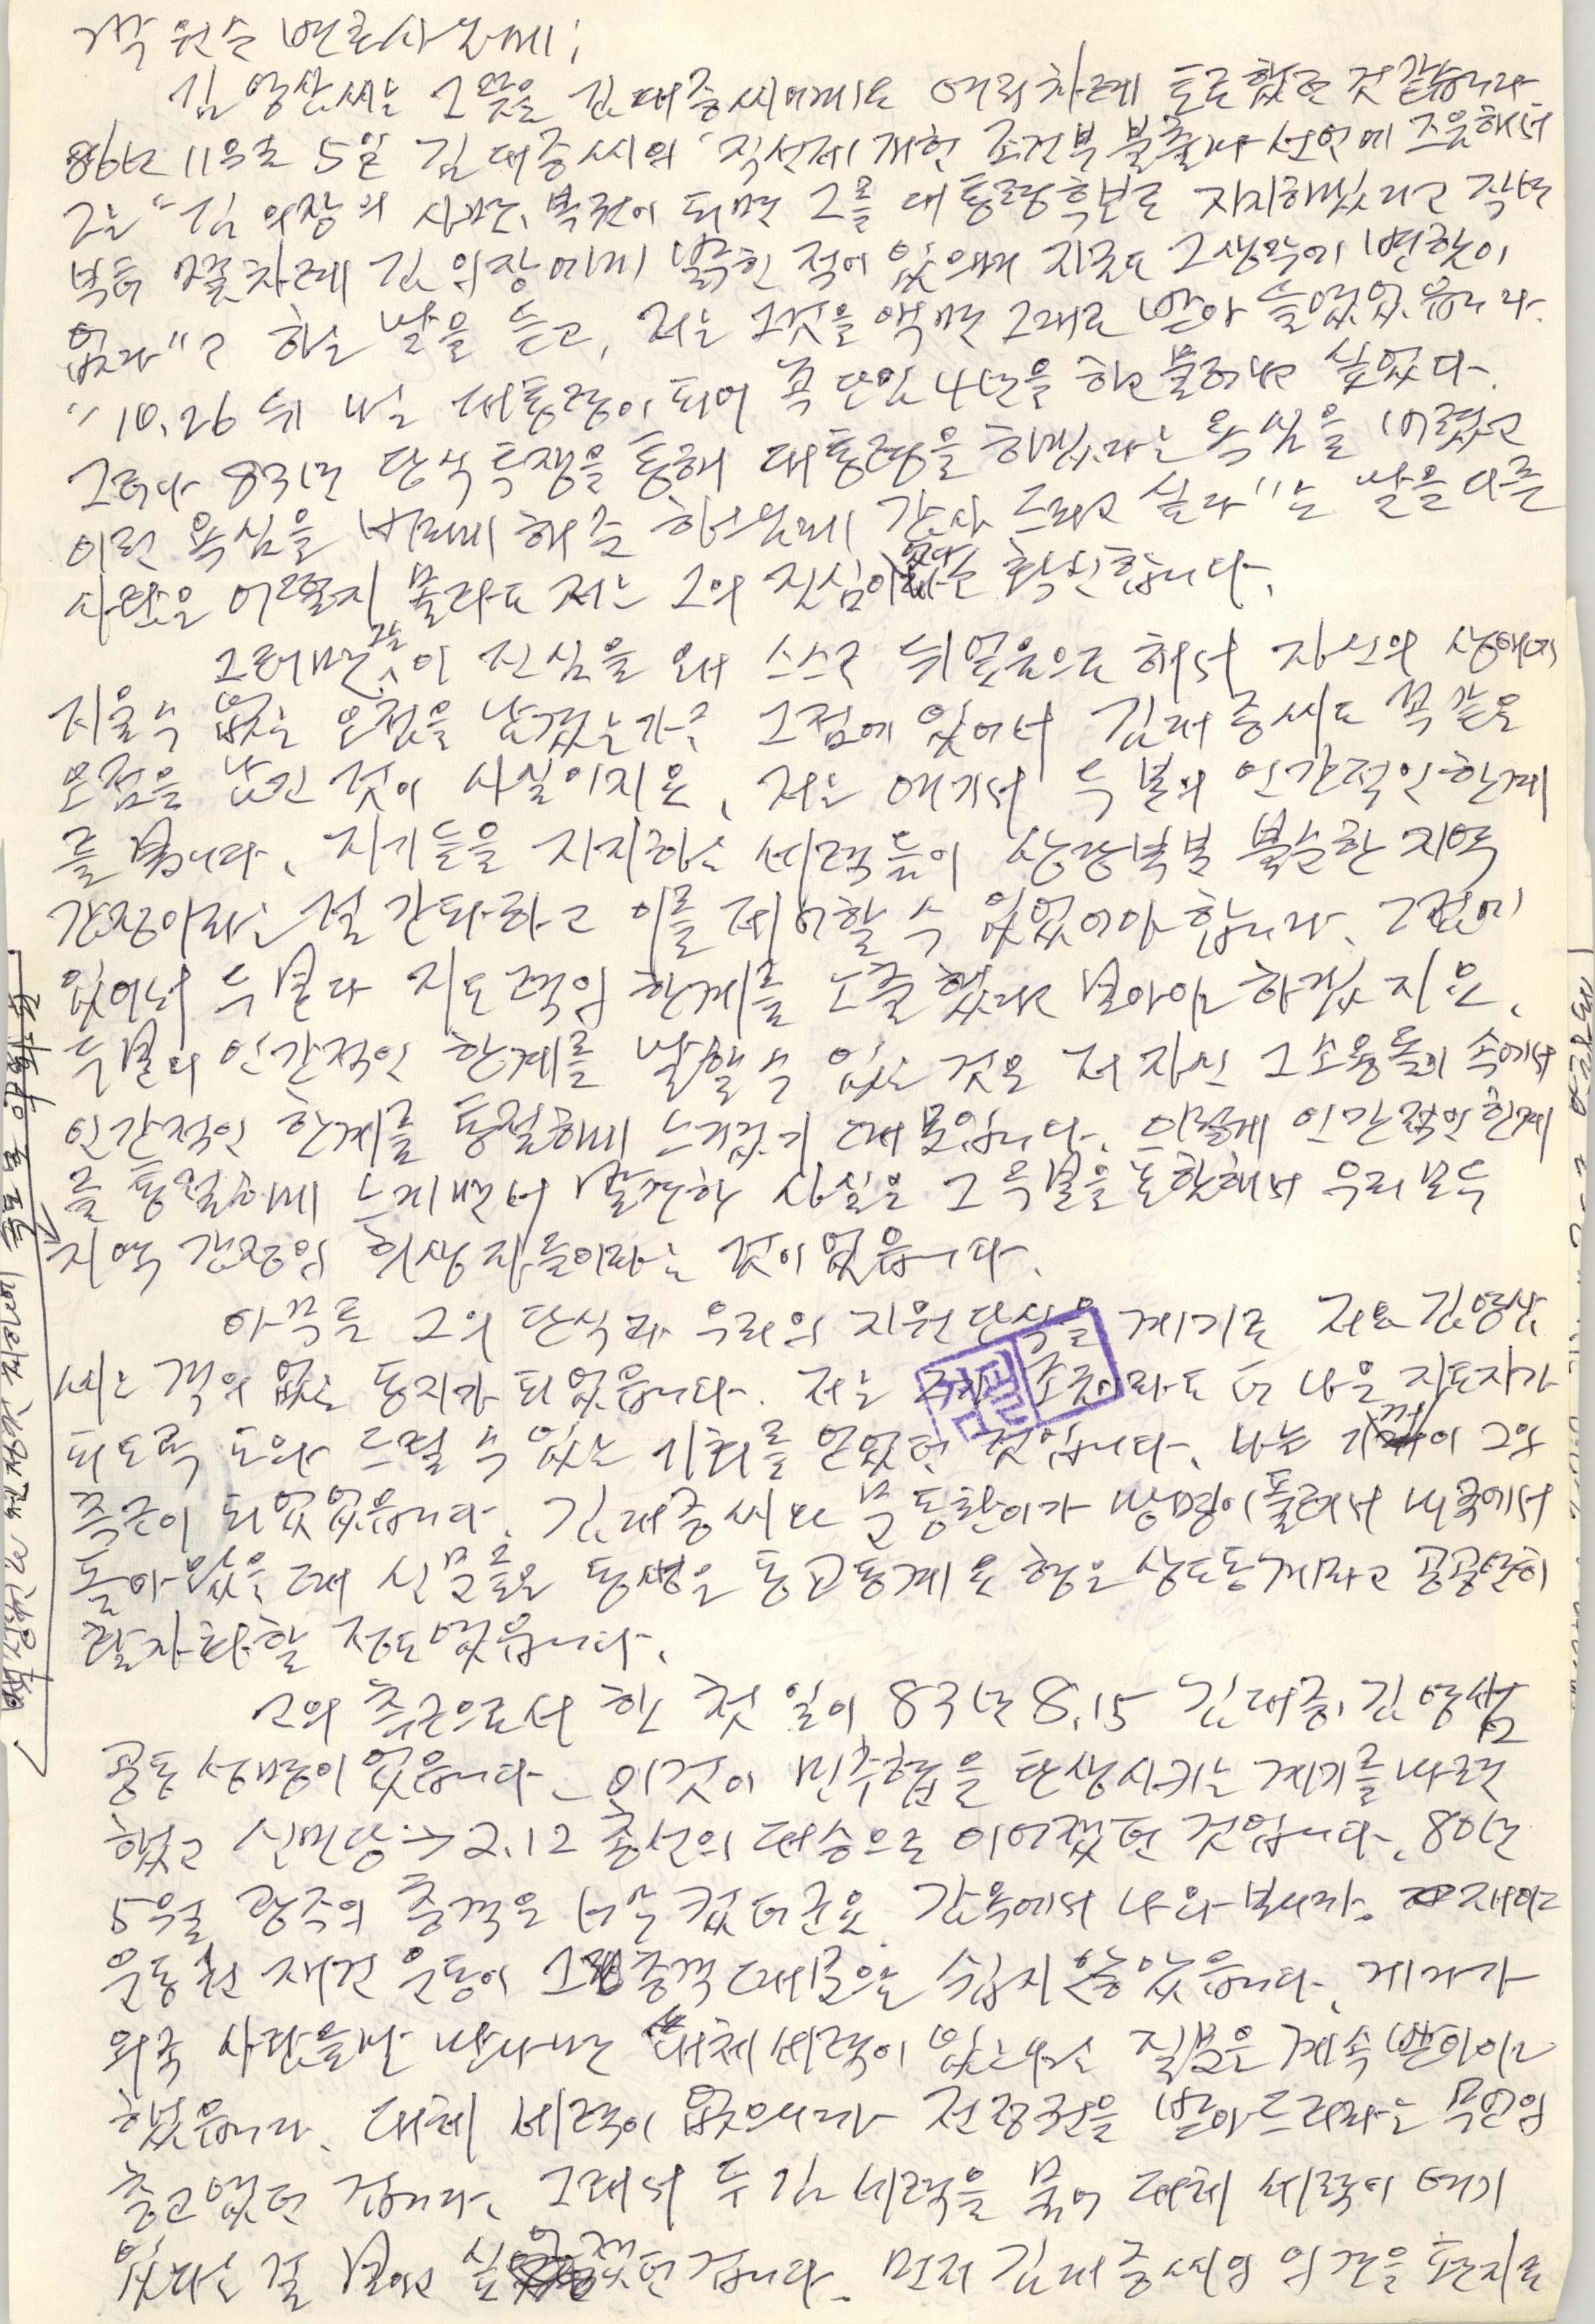 박원순 변호사님께;
김영삼씨는 그 뜻을 김대중씨에게도 여러 차례 토로했던 것 같습니다
86년 11월 5일 김대중씨의 직선제 개헌 조건부 불출마 선언에 즈음해서
그는 "김 의장의 사면, 복권이 되면 그를 대통령후보로 지지하겠다고 작년
부터 몇 차례 김 의장에게 밝힌 적이 있으며 지금도 그 생각에 변함이
없다"고 하는 말을 듣고, 저는 그것을 액면 그대로 받아 들였었읍니다.
"10.26 뒤 내 대통령이 되어 꼭 단임 4년을 하고 물러나고 싶었다.
그러나 83년 단식투쟁을 통해 대통령을 하겠다는 욕심을 버렸고
이런 욕심을 버리게 해준 하느님께 감사 드리고 싶다"는 말을 다른
사람은 어떨지 몰라도 저는 그의 진심이었다는 확신합니다.
그러면 그는 이 진심을 왜 스스로 뒤엎음으로 해서 자신의 생애에
지울 수 없는 오점을 남겼는가? 그 점에 있어서 김대중씨도 꼭 같은
오점을 남긴 것이 사실이지요, 저는 여기서 두 분의 인간적인 한계
를 봅니다. 자기들을 지지하는 세력들이 상당부분 불순한 지역
감정이라는 걸 간파하고 이를 제어할 수 있었어야 합니다. 그 점에
있어서 두 분 다 지도력의 한계를 노출했다고 보아야 하겠지요.
두 분의 인간적인 한계를 말할 수 있는 것은 저 자신 그 소용돌이 속에서
인간적인 한계를 통절하게 느끼었기 때문입니다. 이렇게 인간적인 한계
를 통절하게 느끼면서 발견한 사실은 그 두 분을 포함해서 우리 모두
지역 감정의 희생자들이라는 것이었읍니다.
아무튼 그의 단식과 우리의 지원 단식을 계기로 저와 김영삼
씨는 격의 없는 동지가 되었읍니다. 저는 그가 조금이라도 더 나은 지도자가
되도록 도와 드릴 수 있는 기회를 얻었던 것입니다. 나는 기꺼이 그의
측근이 되었었읍니다. 김대중씨와 문동환이가 망명이 풀려서 미국에서
돌아왔을 때 신문들은 동생은 동교동계요 형은 상도동계라고 공공연히
활자화할 정도였읍니다.
그의 측근으로서 한 첫 일이 83년 8.15 김대중, 김영삼
공동 성명이었읍니다. 이것이 민추협을 탄생시키는 계기를 마련
했고 신민당→2.12 총선의 대승으로 이어졌던 것입니다. 80년
5월 광주의 충격은 너무 컸더군요. 감옥에서 나와 보니까. 재야
운동권 재건 운동이 그 충격 때문에 쉽지 않았읍니다. 게다가
외국 사람들만 만나면 대체세력이 있느냐는 질문을 계속 받아야
했읍니다. 대체 세력이 없으니까 전정권을 받아드리라는
충고였던 겁니다. 그래서 두 김 세력을 묶어 대체 세력이 여기
있다는 걸 보이고 싶었던 겁니다. 먼저 김대중씨의 의견을 편지로
검열